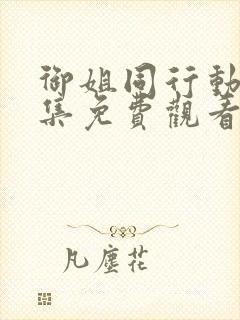 御姐同行動
集免費觀看
凡塵花